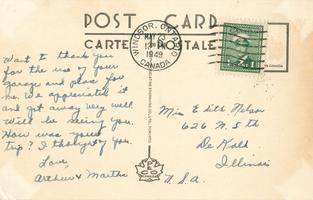 POST CARD
CARTE POSTALE
WINDSOR, ONTARIO
MAY 23
12 30 PM
1949
CANADA
IN CANADA
Want to thank you
for the use of your
garage and place for
us. We appreciated it
and got away very well
Will be seeing you.
How was your
trip? I thought you.
Love,
Arthur & Martha
Miss Edith Nelson
626 N. 5th
De Kalb
Illinois
U.S.A.
PECO